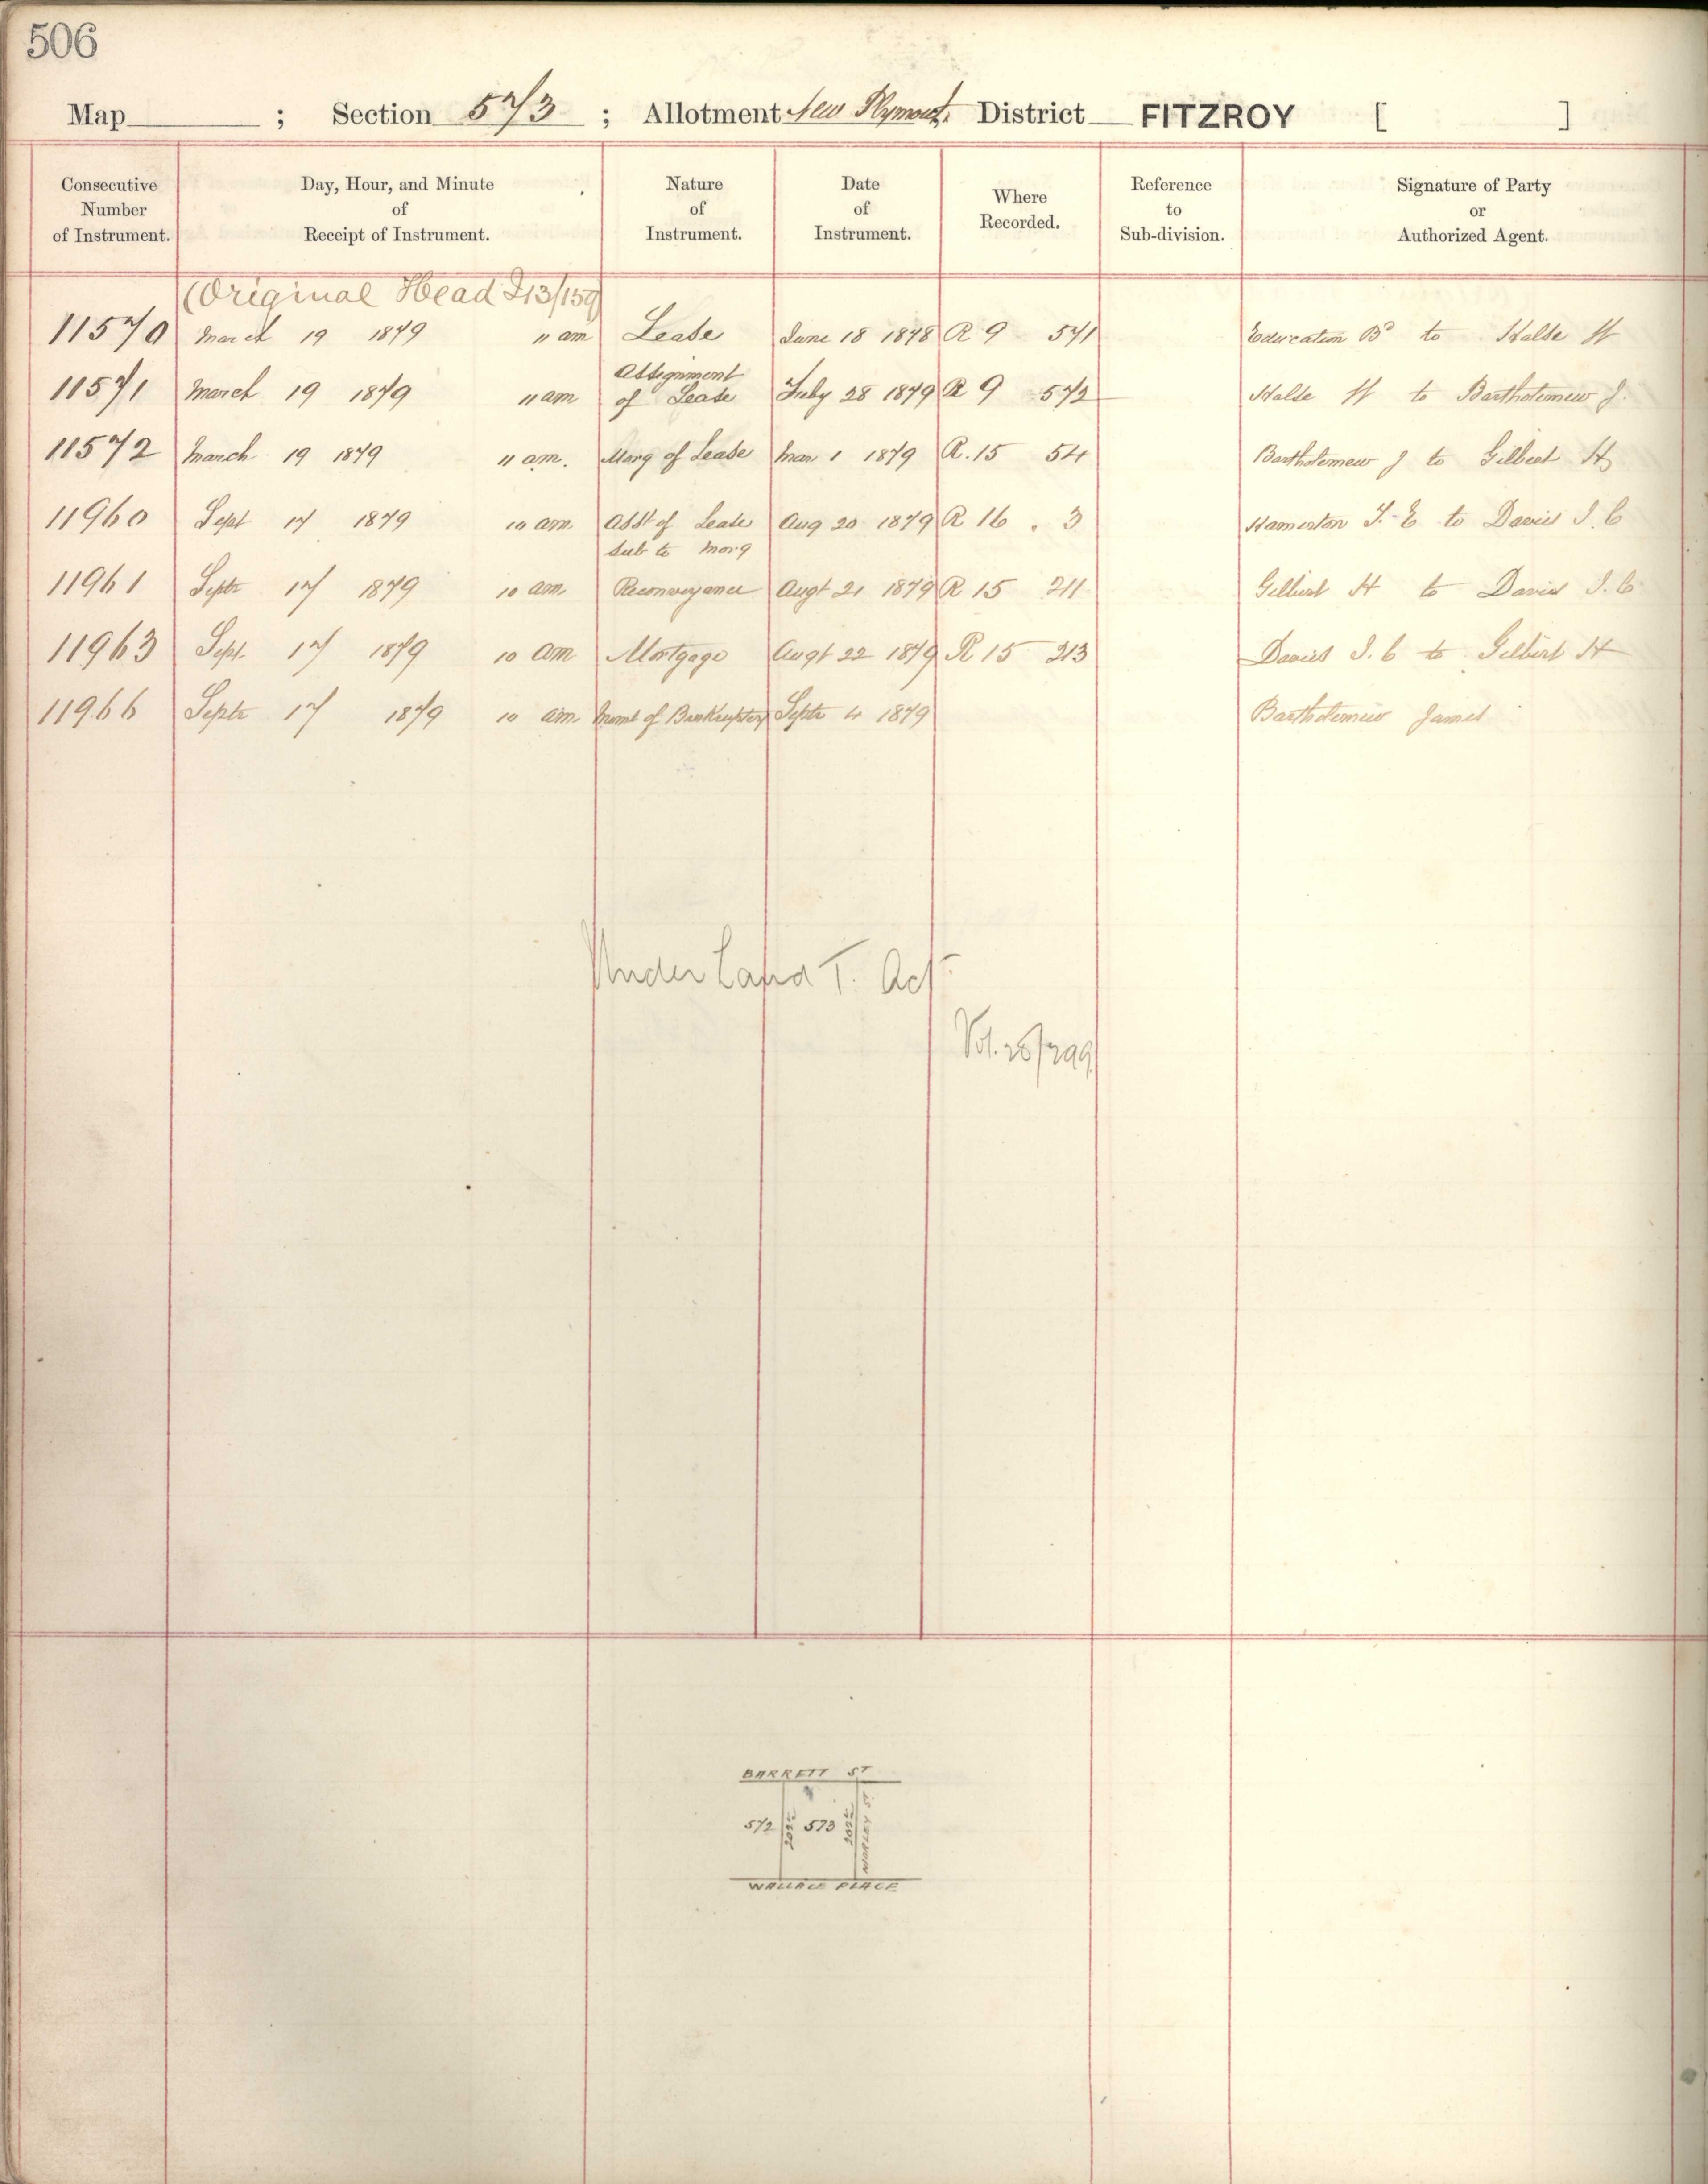 506
Map ; Section 573 ; Allotment New Plymouth District FITZROY [ ]
Consecutive Number of Instrument. Day, Hour, and Minute of Receipt of Instrument. Nature of Instrument. Date of Instrument. Where Recorded. Reference to Sub-division. Signature of Party or Authorized Agent.
(Original Head I13/159)
11570 March 19 1879 11 am Lease June 18 1878 R 9 571 Education Bd to Halse H
11571 March 19 1879 11 am Assignment of Lease July 28 1879 R 9 572 Halse H to Bartholomew J.
11572 March 19 1879 11 am. Morg of Lease Mar 1 1879 R. 15 54 Bartholomew J to Gilbert H
11960 Sept 17 1879 10 am Asst of Lease Aug 20 1879 R 16 . 3 Hamerton T. E to Davies I. C
sub to morg
11961 Septr 17 1879 10 am. Reconveyance Augt 21 1879 R 15 211 Gilbert H to Davies I. C.
11963 Sept. 17 1879 10 am Mortgage Augt 22 1879 R 15 213 Davies I. C to Gilbert H
11966 Septr 17 1879 10 am of Bankruptcy Septr 4 1879 Bartholomew James
Under Land T. Act
Vol. 26/299
BARRETT ST
572 573
MORLEY ST.
WALLACE PLACE